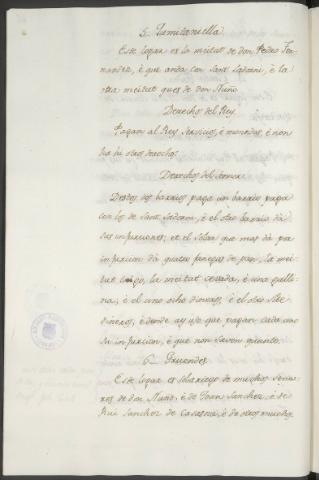 5. Familaniella
Este logar es la meitat de don Pedro Fer-
nandez, è que anda con Sant Sadorni, è la
otra meitat ques de don Nuño
Derechos del Rey.
Pagan al Rey servicios, è monedas, è non
ha hi otros derechos.
Derechos del Señor
Destos dos barrios paga un barrio paga
con los de Sant Sadorni, è el otro barrio dà
sus infurciones; et el solar que mas dà por
infurcion dà quatro fanegas de pan, la mei-
tat trigo, la meitat cevada, è una galli-
na, è el uno ocho dineros, è el otro siete
dineros, è dende ay uso que pagan cada uno
sa infurcion, è que non saven quanto.
6. Gruendes
Este logar es solariego de muchos seño-
res de don Nuño, è de Joan Sanchez, è de
Rui Sanchez de è de otros muchos